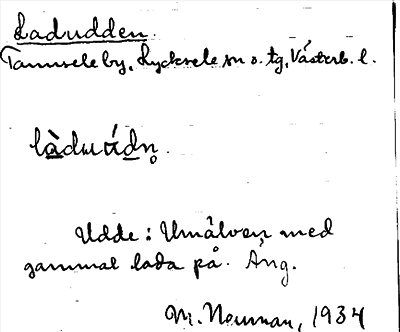 Ladudden.
Tannsele by, Lycksele sn o. tg, Västerb. l.
làduǘdn̥.
Udde: Umälven med
gammal lada på. Ång.
M. Neuman, 1934